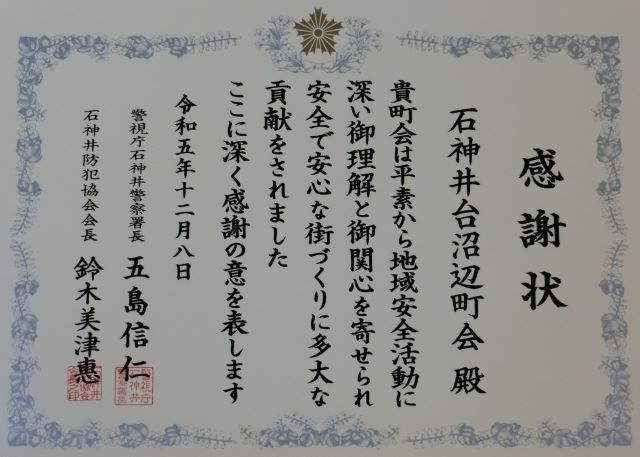 感謝状
石神井台沼辺町会 殿
貴町会は平素から地域安全活動に
深い御理解と御関心を寄せられ
安全で安心な街づくりに多大な
貢献をされました
ここに深く感謝の意を表します
令和五年十二月八日
警視庁石神井警察署長 五島信仁
石神井防犯協会会長 鈴木美津惠